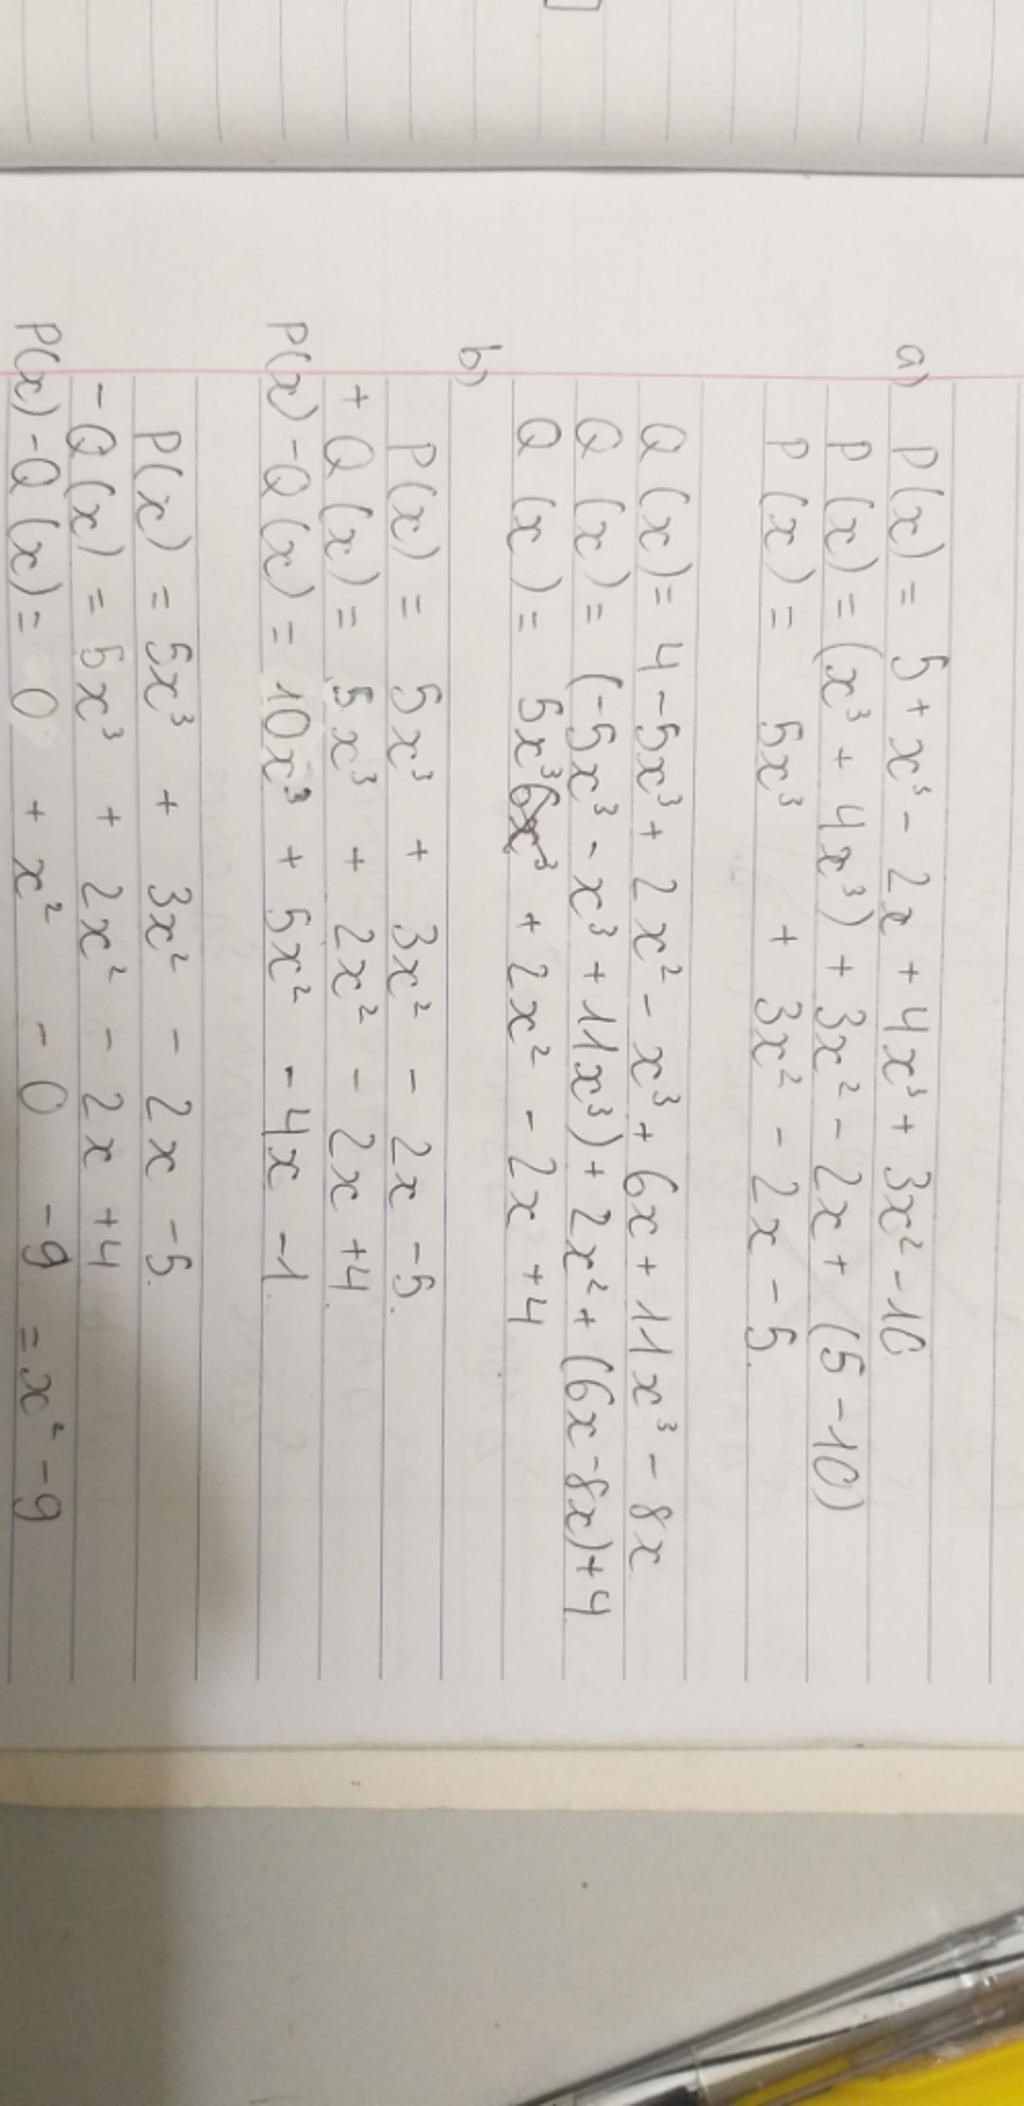 a) P(x) = 5 + x³ - 2x + 4x³ + 3x² - 10
P(x) = (x³ + 4x³) + 3x² - 2x + (5 - 10)
P(x) = 5x³ + 3x² - 2x - 5
Q(x) = 4 - 5x³ + 2x² - x³ + 6x + 11x³ - 8x
Q(x) = (-5x³ - x³ + 11x³) + 2x² + (6x - 8x) + 4
Q(x) = 5x³ + 2x² - 2x + 4
b)
P(x) = 5x³ + 3x² - 2x - 5
+ Q(x) = 5x³ + 2x² - 2x + 4
P(x) - Q(x) = 10x³ + 5x² - 4x - 1
P(x) = 5x³ + 3x² - 2x - 5
- Q(x) = 5x³ + 2x² - 2x + 4
P(x) - Q(x) = 0 + x² - 0 - 9 = x² - 9